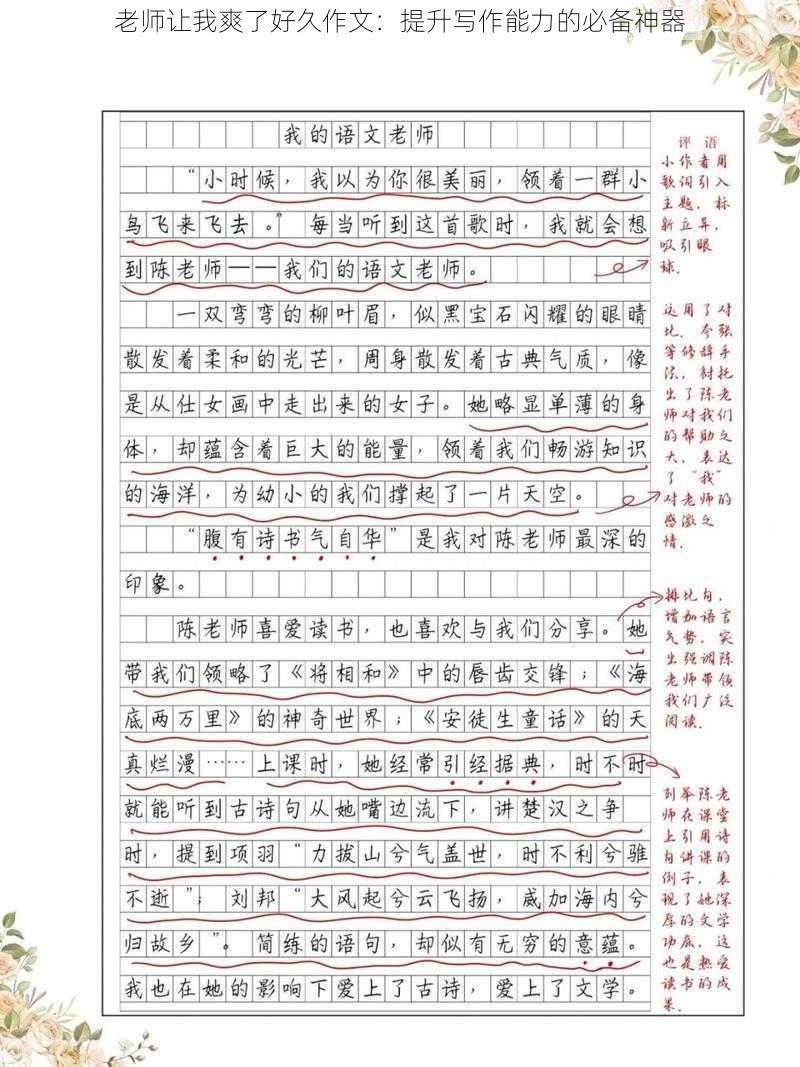 老师让我爽了好久作文：提升写作能力的必备神器
我的语文老师
“小时候，我以为你很美丽，领着一群小
鸟飞来飞去。”每当听到这首歌时，我就会想
到陈老师——我们的语文老师。
一双弯弯的柳叶眉，似黑宝石闪耀的眼睛
散发着柔和的光芒，周身散发着古典气质，像
是从仕女画中走出来的女子。她略显单薄的身
体，却蕴含着巨大的能量，领着我们畅游知识
的海洋，为幼小的我们撑起了一片天空。
“腹有诗书气自华”是我对陈老师最深的
印象。
陈老师喜爱读书，也喜欢与我们分享。她
带我们领略了《将相和》中的唇齿交锋；《海
底两万里》的神奇世界；《安徒生童话》的天
真烂漫……上课时，她经常引经据典，时不时
就能听到古诗句从她嘴边流下，讲楚汉之争
时，提到项羽“力拔山兮气盖世，时不利兮骓
不逝”；刘邦“大风起兮云飞扬，威加海内兮
归故乡”。简练的语句，却似有无穷的意蕴。
我也在她的影响下爱上了古诗，爱上了文学。
评语
小作者用
歌词引入
主题，标
新立异，
吸引眼
球.
这用了对
比、夸张
等修辞手
法，衬托
出了陈老
师对我们
的帮助之
大，表达
了“我”
对老师的
感激之
情.
排比句，
增加语言
气势，突
出强调陈
老师带领
我们广泛
阅读.
列举陈老
师在课堂
上引用诗
句讲课的
例子，表
现了她深
厚的文学
功底，这
也是热爱
读书的成
果.